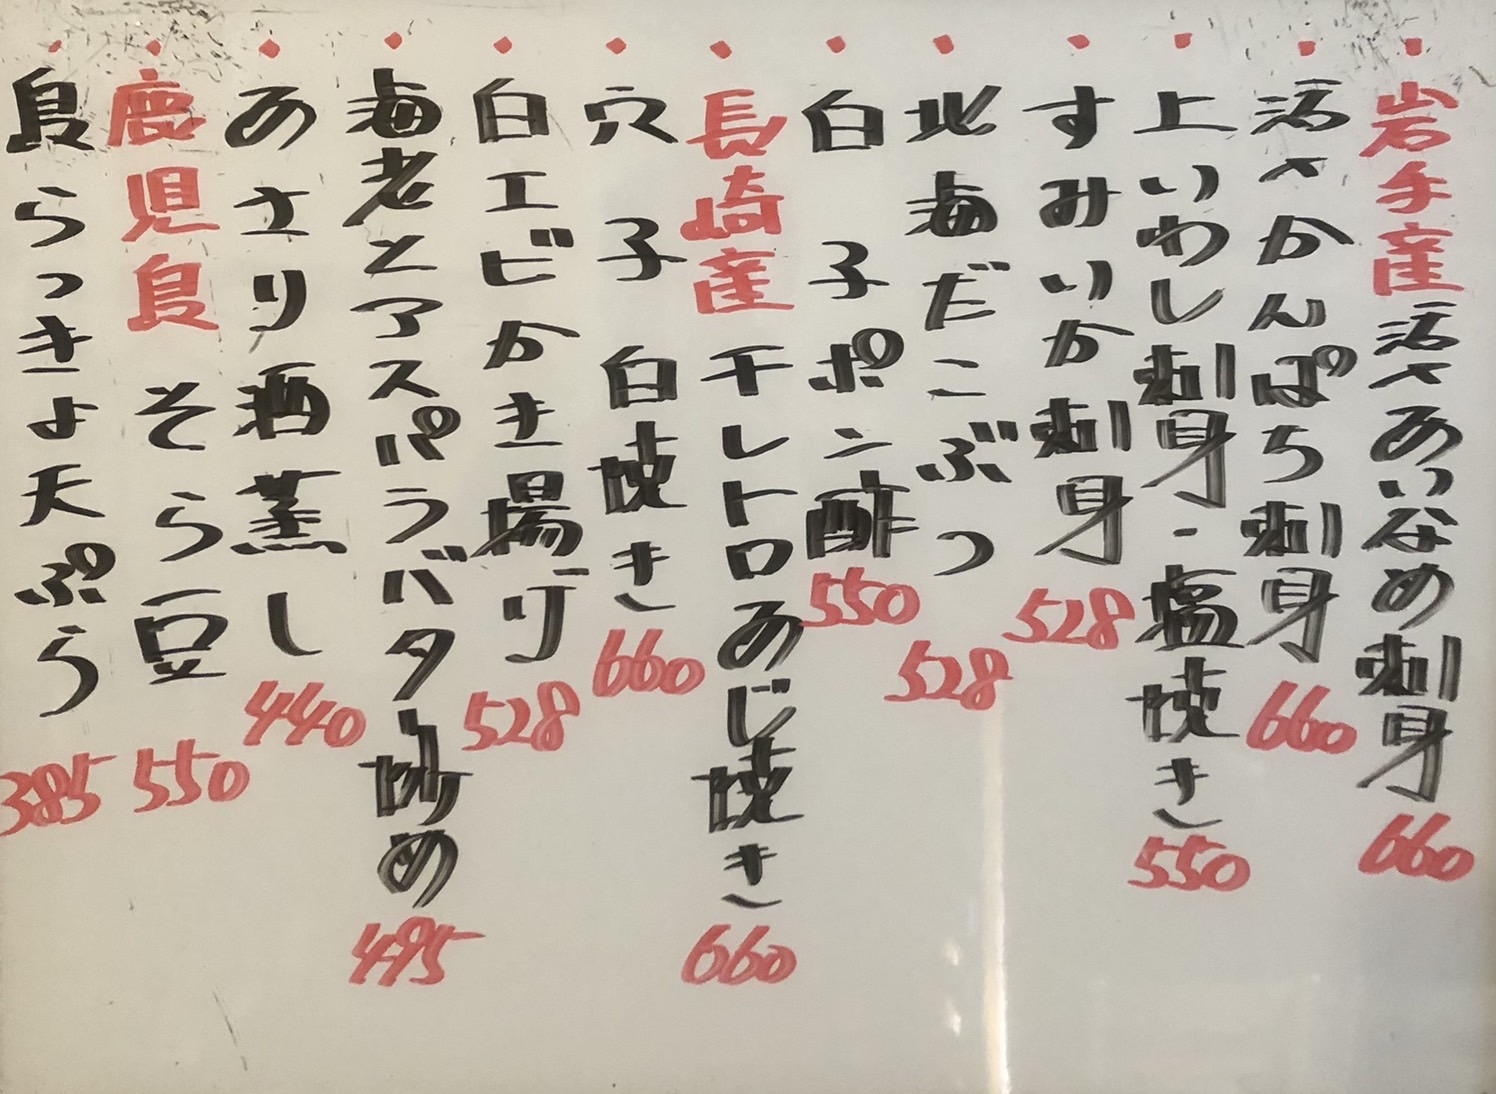 ・岩手産活〆あいなめ刺身 660
・活〆かんぱち刺身 660
・上いわし刺身・塩焼き 550
・すみいか刺身 528
・北海だこぶつ 528
・白子ポン酢 550
・長崎産干レトロあじ焼き 660
・穴子白焼き 660
・白エビかき揚げ 528
・海老とアスパラバター炒め 495
・あさり酒蒸し 440
・鹿児島そら豆 550
・島らっきょ天ぷら 385